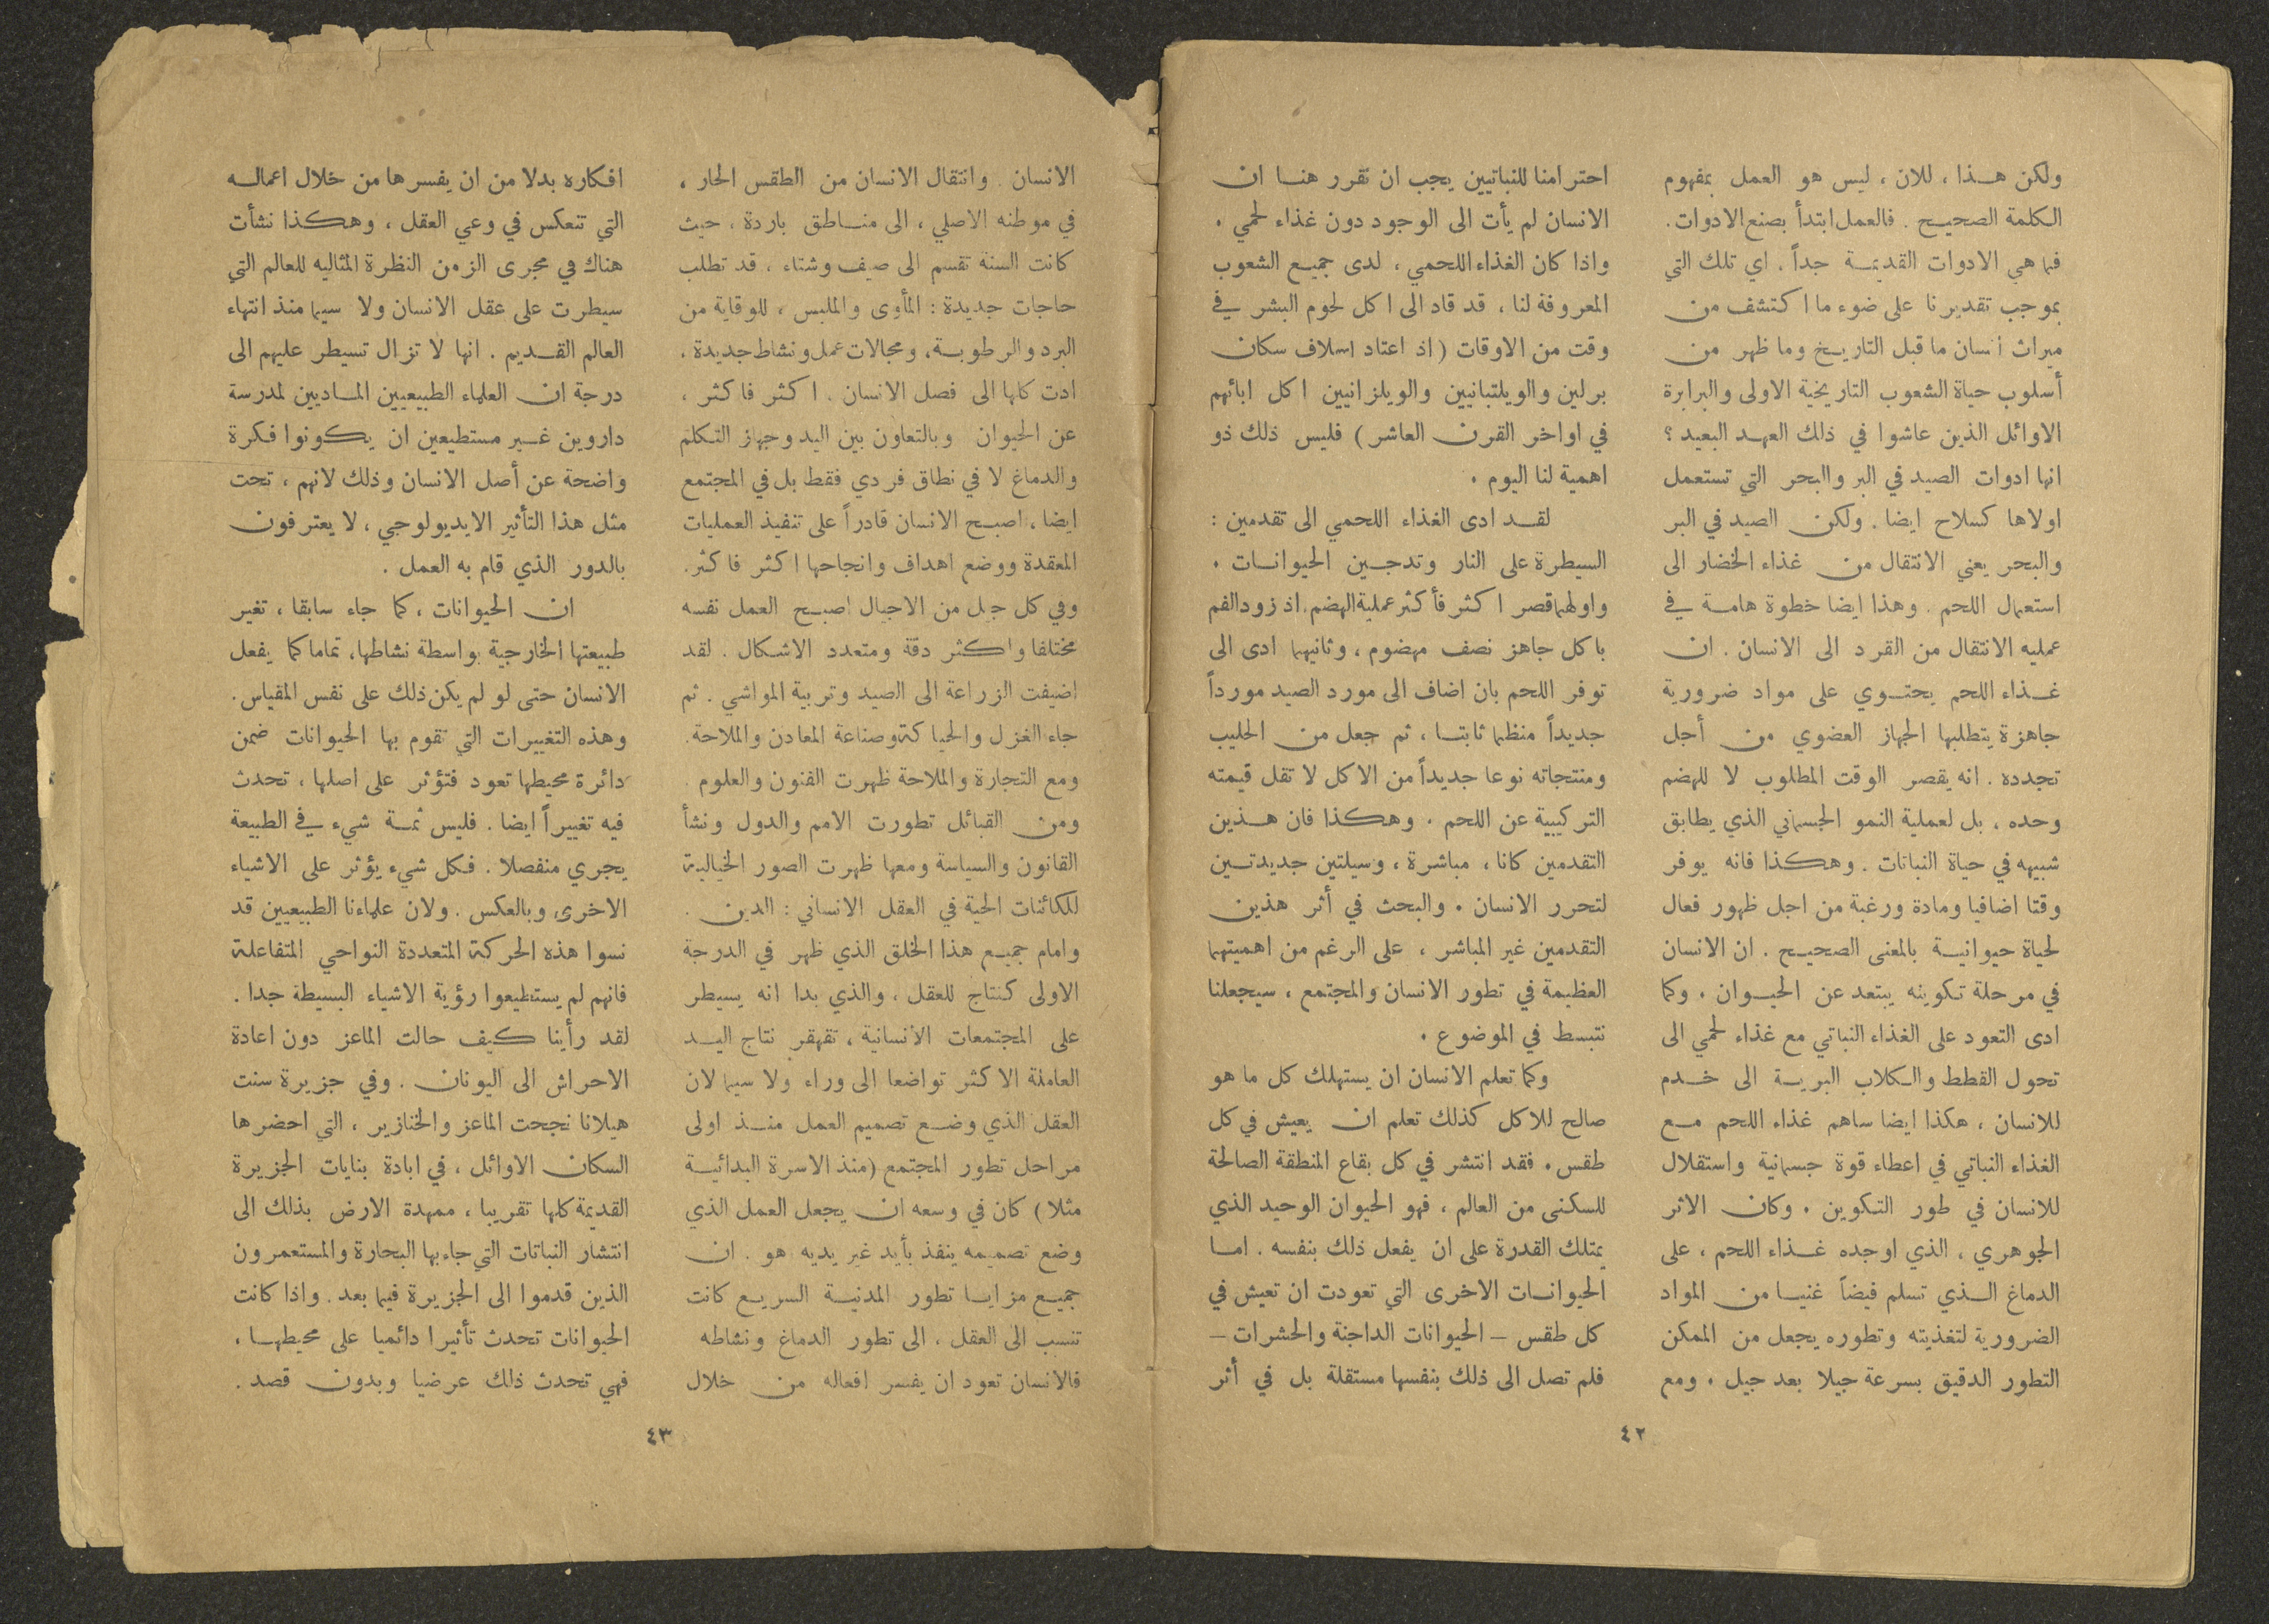 ولكن هذا ، للان ، ليس هو العمل بمفهوم
الكلمة الصحيح . فالعمل ابتدأ بصنع الادوات .
فما هي الادوات القديمة جداً . اي تلك التي
بموجب تقديرنا على ضوء ما اكتشف من
ميراث انسان ما قبل التاريخ وما ظهر من
أسلوب حياة الشعوب التاريخية الاولى والبرابرة
الاوائل الذين عاشوا في ذلك العهد البعيد ؟
انها ادوات الصيد في البر والبحر التي تستعمل
اولاها كسلاح ايضا . ولكن الصيد في البر
والبحر يعني الانتقال من غذاء الخضار الى
استعمال اللحم . وهذا ايضا خطوة هامة في
عمليه الانتقال من القرد الى الانسان . ان
غذاء اللحم يحتوي على مواد ضرورية
جاهزة يتطلبها الجهاز العضوي من أجل
تجدده . انه يقصر الوقت المطلوب لا للهضم
وحده ، بل لعملية النمو الجسماني الذي يطابق
شبيهه في حياة النباتات . وهكذا فانه يوفر
وقتا اضافيا ومادة ورغبة من اجل ظهور فعال
لحياة حيوانية بالمعنى الصحيح . ان الانسان
في مرحلة تكوينه يبتعد عن الحيوان . وكما
ادى التعود على الغذاء النباتي مع غذاء لحمي الى
تحول القطط والكلاب البرية الى خدم
للانسان ، هكذا ايضا ساهم غذاء اللحم مع
الغذاء النباتي في اعطاء قوة جسمانية واستقلال
للانسان في طور التكوين . وكان الاثر
الجوهري ، الذي اوجده غذاء اللحم ، على
الدماغ الذي تسلم فيضاً غنيا من المواد
الضرورية لتغذيته وتطوره يجعل من الممكن
التطور الدقيق بسرعة جيلا بعد جيل . ومع
احترامنا للنباتيين يجب ان نقرر هنا ان
الانسان لم يأت الى الوجود دون غذاء لحمي .
واذا كان الغذاء اللحمي ، لدى جميع الشعوب
المعروفة لنا ، قد قاد الى اكل لحوم البشر في
وقت من الاوقات ( اذ اعتاد اسلاف سكان
برلين والويلتبانيين والويلزانيين اكل ابائهم
في اواخر القرن العاشر ) فليس ذلك ذو
اهمية لنا اليوم .
لقد ادى الغذاء اللحمي الى تقدمين :
السيطرة على النار وتدجين الحيوانات .
واولهما قصر اكثر فأكثر عملية الهضم . اذ زود الفم
باكل جاهز نصف مهضوم ، وثانيهما ادى الى
توفر اللحم بان اضاف الى مورد الصيد مورداً
جديداً منظما ثابتا ، ثم جعل من الحليب
ومنتجاته نوعا جديداً من الاكل لا تقل قيمته
التركيبية عن اللحم . وهكذا فان هذين
التقدمين كانا ، مباشرة ، وسيلتين جديدتين
لتحرر الانسان . والبحث في أثر هذين
التقدمين غير المباشر ، على الرغم من اهميتهما
العظيمة في تطور الانسان والمجتمع ، سيجعلنا
نتبسط في الموضوع .
وكما تعلم الانسان ان يستهلك كل ما هو
صالح للاكل كذلك تعلم ان يعيش في كل
طقس . فقد انتشر في كل بقاع المنطقة الصالحة
للسكنى من العالم ، فهو الحيوان الوحيد الذي
يمتلك القدرة على ان يفعل ذلك بنفسه . اما
الحيوانات الاخرى التي تعودت ان تعيش في
كل طقس – الحيوانات الداجنة والحشرات –
فلم تصل الى ذلك بنفسها مستقلة بل في أثر
٤٢
الانسان . وانتقال الانسان من الطقس الحار ،
في موطنه الاصلي ، الى مناطق باردة ، حيث
كانت السنة تقسم الى صيف وشتاء ، قد تطلب
حاجات جديدة : المأوى والملبس ، للوقاية من
البرد والرطوبة ، ومجالات عمل ونشاط جديدة .
ادت كلها الى فصل الانسان . اكثر فاكثر ،
عن الحيوان وبالتعاون بين اليد وجهاز التكلم
والدماغ لا في نطاق فردي فقط بل في المجتمع
ايضا ، اصبح الانسان قادراً على تنفيذ العمليات
المعقدة ووضع اهداف وانجاحها اكثر فاكثر .
وفي كل جيل من الاجيال اصبح العمل نفسه
مختلفا واكثر دقة ومتعدد الاشكال . لقد
اضيفت الزراعة الى الصيد وتربية المواشي . ثم
جاء الغزل والحياكة وصناعة المعادن والملاحة .
ومع التجارة والملاحة ظهرت الفنون والعلوم .
ومن القبائل تطورت الامم والدول ونشأ
القانون والسياسة ومعها ظهرت الصور الخيالية
للكائنات الحية في العقل الانساني : الدين .
وامام جميع هذا الخلق الذي ظهر في الدرجة
الاولى كنتاج للعقل ، والذي بدا انه يسيطر
على المجتمعات الانسانية ، تقهقر نتاج اليد
العاملة الاكثر تواضعا الى وراء ولا سيما لان
العقل الذي وضع تصميم العمل منذ اولى
مراحل تطور المجتمع ( منذ الاسرة البدائية
مثلا ) كان في وسعه ان يجعل العمل الذي
وضع تصميمه ينفذ بأيد غير يديه هو . ان
جميع مزايا تطور المدنية السريع كانت
تنسب الى العقل ، الى تطور الدماغ ونشاطه
فالانسان تعود ان يفسر افعاله من خلال
افكاره بدلا من ان يفسرها من خلال اعماله
التي تنعكس في وعي العقل ، وهكذا نشأت
هناك في مجرى الزمن النظرة المثاليه للعالم التي
سيطرت على عقل الانسان ولا سيما منذ انتهاء
العالم القديم . انها لا تزال تسيطر عليهم الى
درجة ان العلماء الطبيعيين الماديين لمدرسة
داروين غير مستطيعين ان يكونوا فكرة
واضحة عن أصل الانسان وذلك لانهم ، تحت
مثل هذا التأثير الايديولوجي ، لا يعترفون
بالدور الذي قام به العمل .
ان الحيوانات ، كما جاء سابقا ، تغير
طبيعتها الخارجية بواسطة نشاطها ، تماما كما يفعل
الانسان حتى لو لم يكن ذلك على نفس المقياس .
وهذه التغييرات التي تقوم بها الحيوانات ضمن
دائرة محيطها تعود فتؤثر على اصلها ، تحدث
فيه تغييراً ايضا . فليس ثمة شيء في الطبيعة
يجري منفصلا . فكل شيء يؤثر على الاشياء
الاخرى وبالعكس . ولان علماءنا الطبيعيين قد
نسوا هذه الحركة المتعددة النواحي المتفاعلة
فانهم لم يستطيعوا رؤية الاشياء البسيطة جدا .
لقد رأينا كيف حالت الماعز دون اعادة
الاحراش الى اليونان . وفي جزيرة سنت
هيلانا نجحت الماعز والخنازير ، التي احضرها
السكان الاوائل ، في ابادة بنايات الجزيرة
القديمة كلها تقريبا ، ممهدة الارض بذلك الى
انتشار النباتات التي جاء بها البحارة والمستعمرون
الذين قدموا الى الجزيرة فيما بعد . واذا كانت
الحيوانات تحدث تأثيرا دائميا على محيطها ،
فهي تحدث ذلك عرضيا وبدون قصد .
٤٣